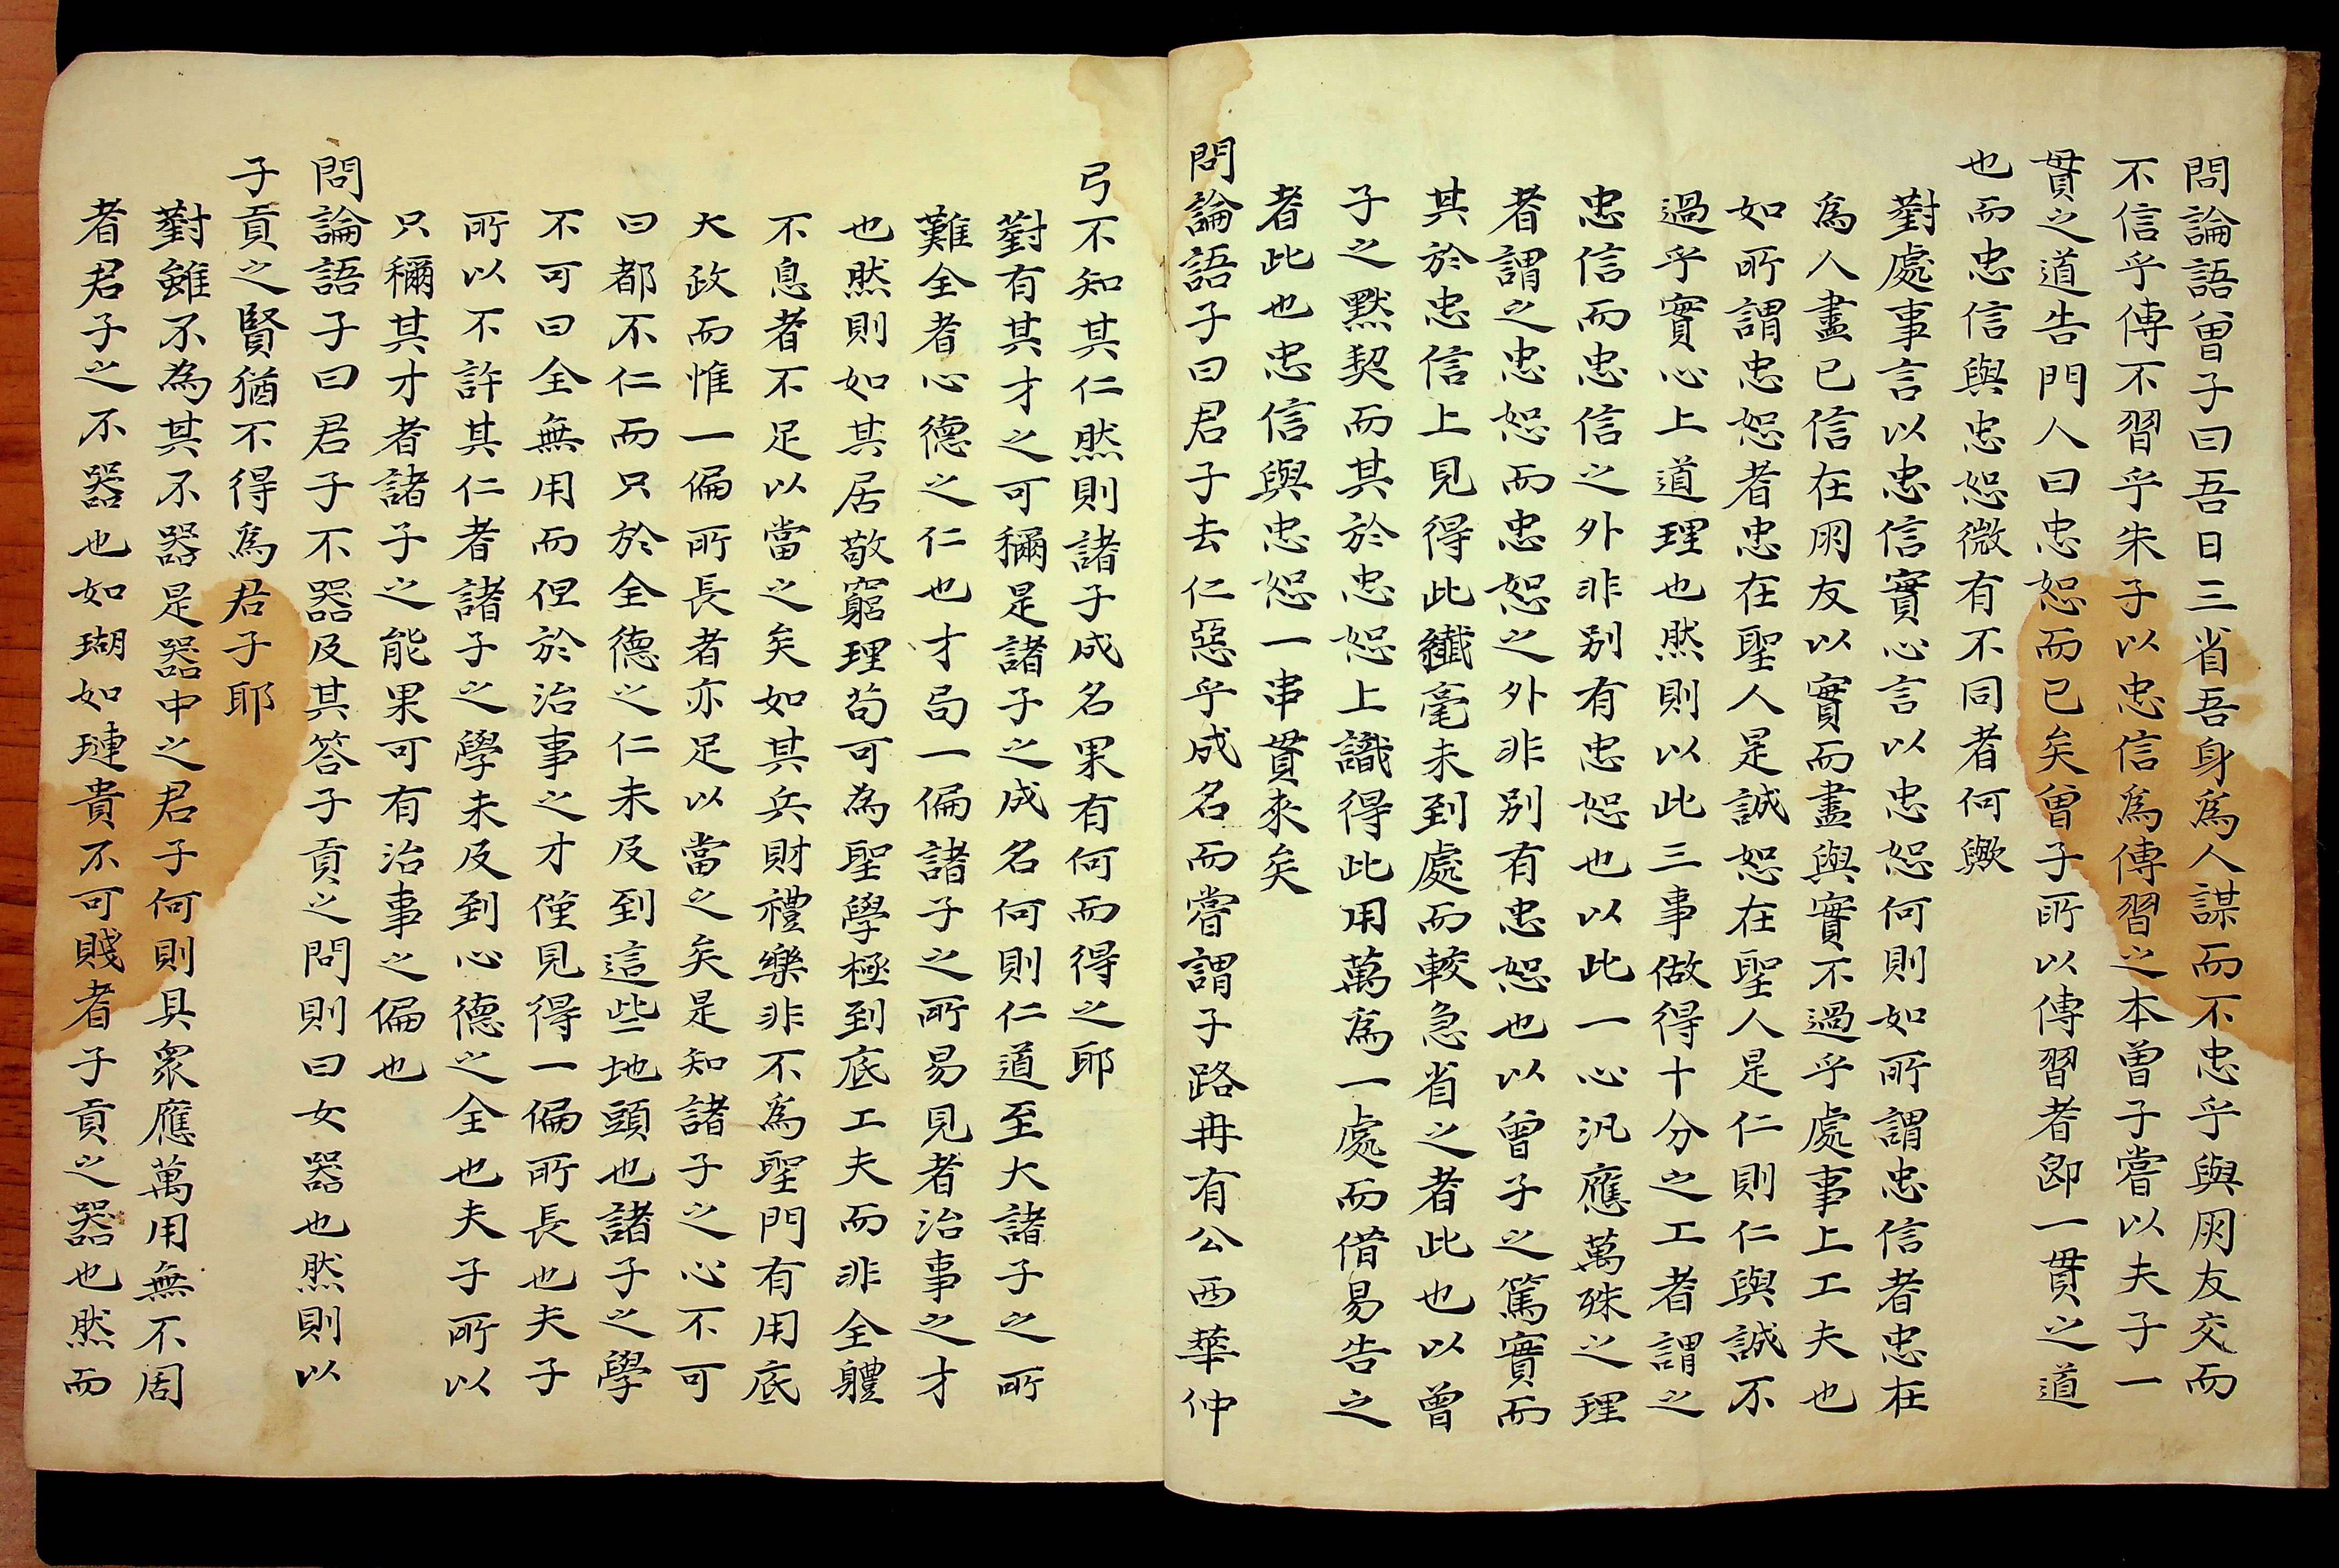 問論語曾子曰吾日三省吾身爲人謀而不忠乎與朋友交而
不信乎傳不習乎朱子以忠信爲傳習之本曾子嘗以夫子一
貫之道告門人曰忠恕而已矣曾子所以傳習者卽一貫之道
也而忠信與忠恕微有不同者何歟
對處事言以忠信實心言以忠恕何則如所謂忠信者忠在
爲人盡已信在朋友以實而盡與實不過乎處事上工夫也
如所謂忠恕者忠在聖人是誠恕在聖人是仁則仁與誠不
過乎實心上道理也然則以此三事做得十分之工者謂之
忠信而忠信之外非別有忠恕也以此一心汎應萬殊之理
者謂之忠恕而忠恕之外非別有忠恕也以曾子之篤實而
其於忠信上見得此纖毫未到處而較急省之者此也以曾
子之默契而其於忠恕上識得此用萬爲一處而借易告之
者此也忠信與忠恕一串貫來矣
問論語子曰君子去仁惡乎成名而嘗謂子路冉有公西華仲
弓不知其仁然則諸子成名果有何而得之耶
對有其才之可穪是諸子之成名何則仁道至大諸子之所
難全者心德之仁也才局一偏諸子之所易見者治事之才
也然則如其居敬窮理苟可為聖學極到底工夫而非全軆
不息者不足以當之矣如其兵財禮樂非不爲聖門有用底
大政而惟一偏所長者亦足以當之矣是知諸子之心不可
曰都不仁而只於全德之仁未及到這些地頭也諸子之學
不可曰全無用而但於治事之才僅見得一偏所長也夫子
所以不許其仁者諸子之學未及到心德之全也夫子所以
只穪其才者諸子之能果可有治事之偏也
問論語子曰君子不器及其答子貢之問則曰女器也然則以
子貢之賢猶不得爲君子耶
對雖不為其不器是器中之君子何則具衆應萬用無不周
者君子之不器也如瑚如璉貴不可賤者子貢之器也然而